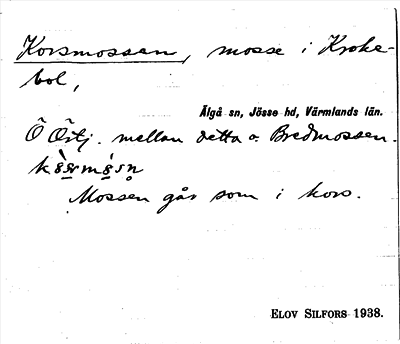 Korsmossen, mosse i Kroke-
bol,
Älgå sn, Jösse hd, Värmlands län.
Ö mellan detta o. Bredmossen.
Mossen går som i kors.
ELOV SILFORS 1938.